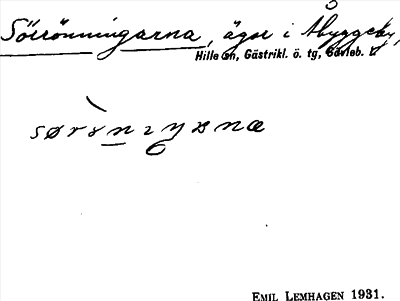 Sörrönningarna, ägor i Åbyggeby,
Hille sn, Gästrikl. ö. tg, Gävleb. l.
EMIL LEMHAGEN 1931.